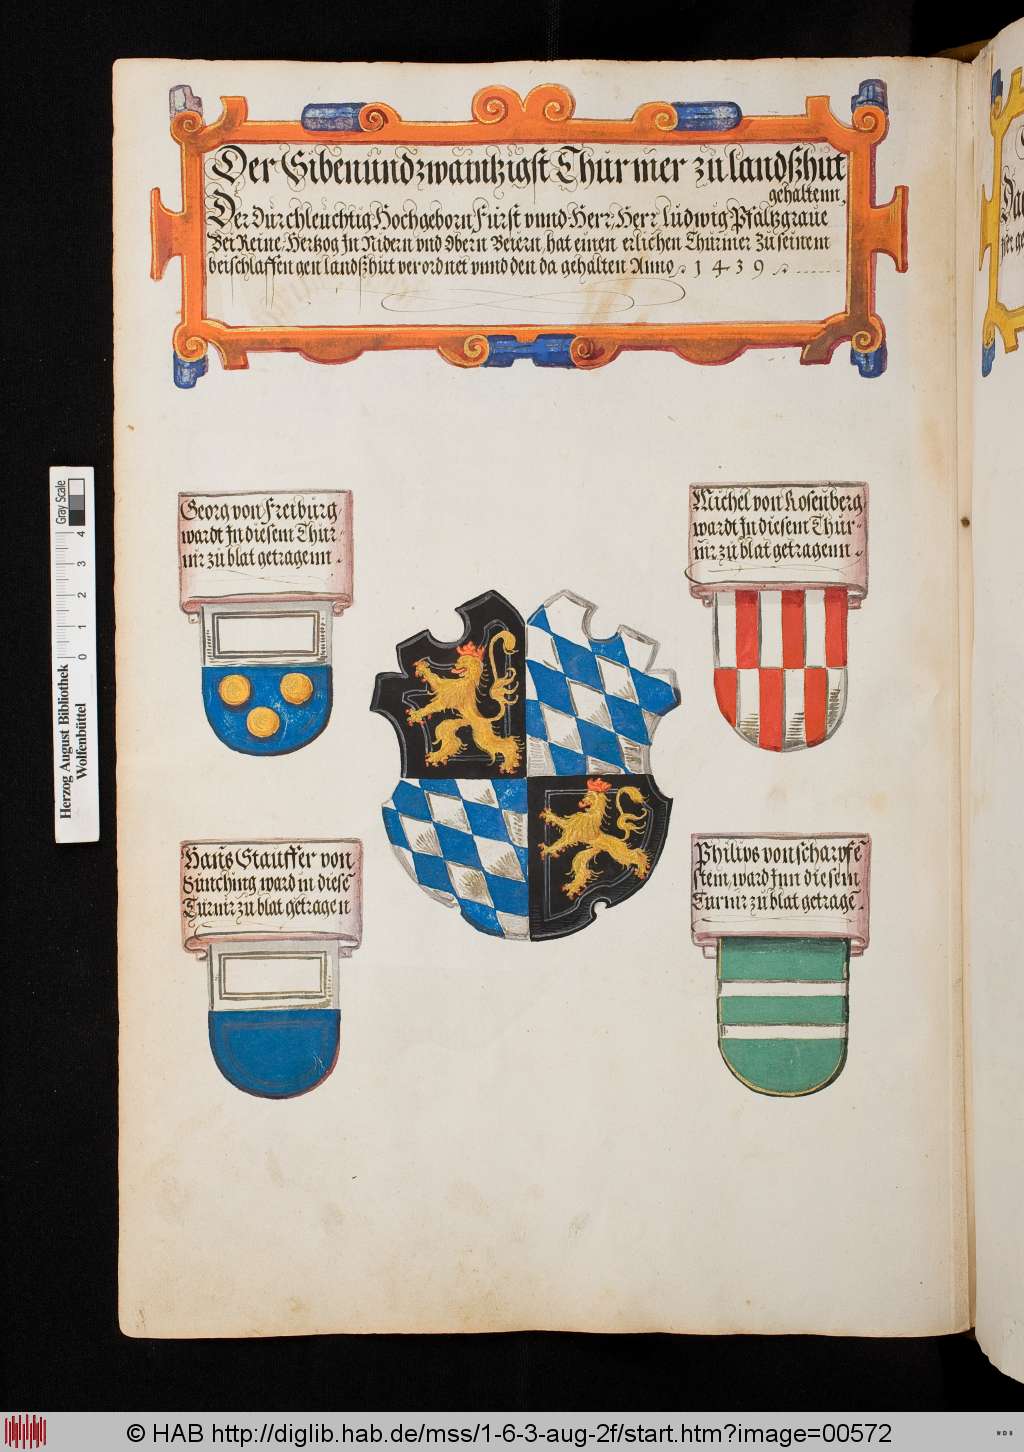 Der Sibenundzwaintzigst Thurnier zu landßhut
gehaltenn,
Der Durchleuchtig Hochgeborn Furst vnnd Herr, Herr Ludwig Pfaltzgraue
Bei Reine, Hertzog In Nidern vnd Obern Beiern, hat einen erlichen Thurnier Zu seinem
beischlaffen gen landßhut verordnet vnnd den da gehalten Anno 1439
Georg von Freiburg
wardt In diesem Thur-
nir zu blat getragenn.
Michel von Rosenberg
wardt In diesem Thur-
nir zu blat getragenn.
Hans Stauffer von
Sünching ward in diesē
Turnir zu blat getragen
Philips von scharpfē
stein, ward Inn diesem
Turnir zu blat getragē.
Herzog August Bibliothek
Wolfenbüttel
Gray Scale
0 1 2 3 4
© HAB http://diglib.hab.de/mss/1-6-3-aug-2f/start.htm?image=00572